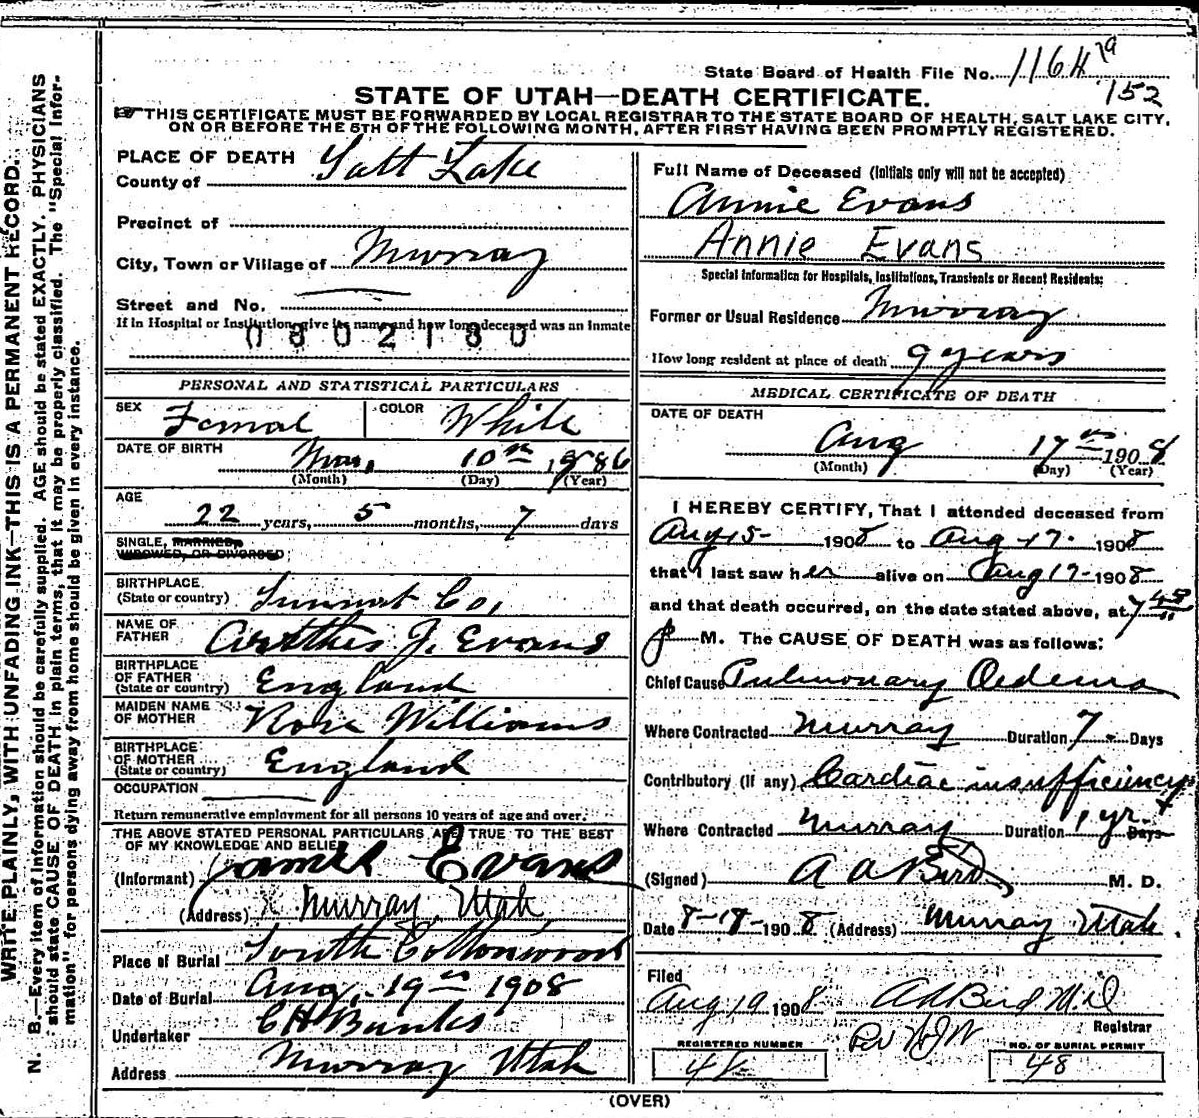 State Board of Health File No. 1164 79
152
STATE OF UTAH—DEATH CERTIFICATE.
THIS CERTIFICATE MUST BE FORWARDED BY LOCAL REGISTRAR TO THE STATE BOARD OF HEALTH, SALT LAKE CITY,
ON OR BEFORE THE 5TH OF THE FOLLOWING MONTH, AFTER FIRST HAVING BEEN PROMPTLY REGISTERED.
WRITE PLAINLY, WITH UNFADING INK—THIS IS A PERMANENT RECORD.
N. B.—Every item of information should be carefully supplied. AGE should be stated EXACTLY. PHYSICIANS
should state CAUSE OF DEATH in plain terms, that it may be properly classified. The "Special Infor-
mation" for persons dying away from home should be given in every instance.
PLACE OF DEATH
County of Salt Lake
Precinct of
City, Town or Village of Murray
Street and No.
If in Hospital or Institution, give its name and how long deceased was an inmate
0802180
PERSONAL AND STATISTICAL PARTICULARS
SEX Femal COLOR White
DATE OF BIRTH Mar. 10th 1886
(Month) (Day) (Year)
AGE
22 years, 5 months, 7 days
SINGLE, MARRIED,
WIDOWED, OR DIVORCED
BIRTHPLACE
(State or country) Summit Co,
NAME OF
FATHER J. Evans
BIRTHPLACE
OF FATHER
(State or country) England
MAIDEN NAME
OF MOTHER Rose Williams
BIRTHPLACE
OF MOTHER
(State or country) England
OCCUPATION
Return remunerative employment for all persons 10 years of age and over.
THE ABOVE STATED PERSONAL PARTICULARS ARE TRUE TO THE BEST
OF MY KNOWLEDGE AND BELIEF
(Informant) James Evans
(Address) Murray, Utah
Place of Burial South Cottonwood
Date of Burial Aug. 19th 1908
Undertaker C H Banks
Address Murray Utah
Full Name of Deceased (Initials only will not be accepted)
Annie Evans
Annie Evans
Special Information for Hospitals, Institutions, Transients or Recent Residents:
Former or Usual Residence Murray
How long resident at place of death 9 years
MEDICAL CERTIFICATE OF DEATH
DATE OF DEATH
Aug 17th 1908
(Month) (Day) (Year)
I HEREBY CERTIFY, That I attended deceased from
Aug 15- 1908 to Aug 17. 1908
that I last saw her alive on Aug 17- 1908
and that death occurred, on the date stated above, at 7 45
P M. The CAUSE OF DEATH was as follows:
Chief Cause Pulmonary Oedema
Where Contracted Murray Duration 7 - Days
Contributory (if any) Cardiac insufficiency
Where Contracted Murray Duration 1 yr. + Days
(Signed) A A Bird M. D.
Date 8-18-1908 (Address) Murray Utah.
Filed
Aug 19 1908 A A Bird M.D
Registrar
REGISTERED NUMBER
48
NO. OF BURIAL PERMIT
48
(OVER)